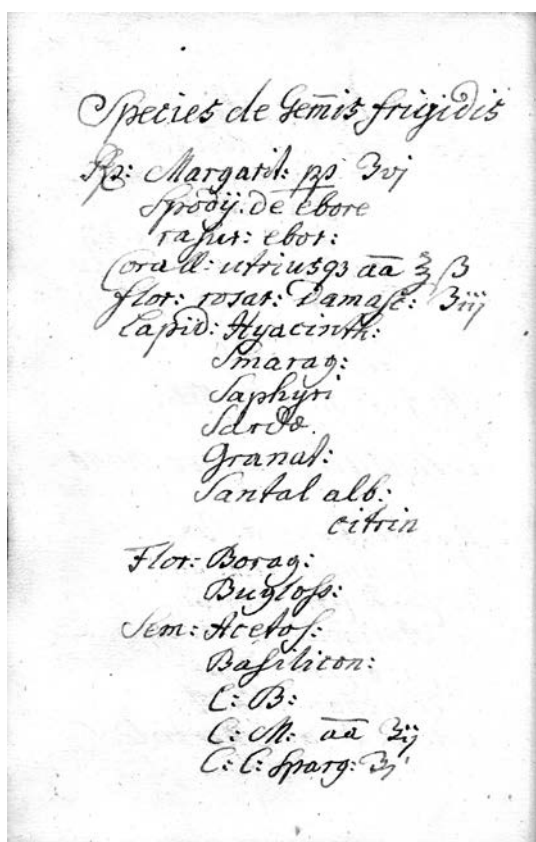 Species de Gem̃is frigidis
Rp: Margarit: pp ʒvj
Spodij. de ebore
rasur: ebor:
Corall: utriusqꝫ aa ℥ β
flor: rosar: Damasc: ʒiij
Lapid: Hyacinth:
Smarag:
Saphyri
Sardæ.
Granat:
Santal alb:
citrin
Flor: Borag:
Bugloss:
Sem: Acetos:
Basilicon:
C: B:
C: M: aa ʒij
C: C: Sparg: ʒj